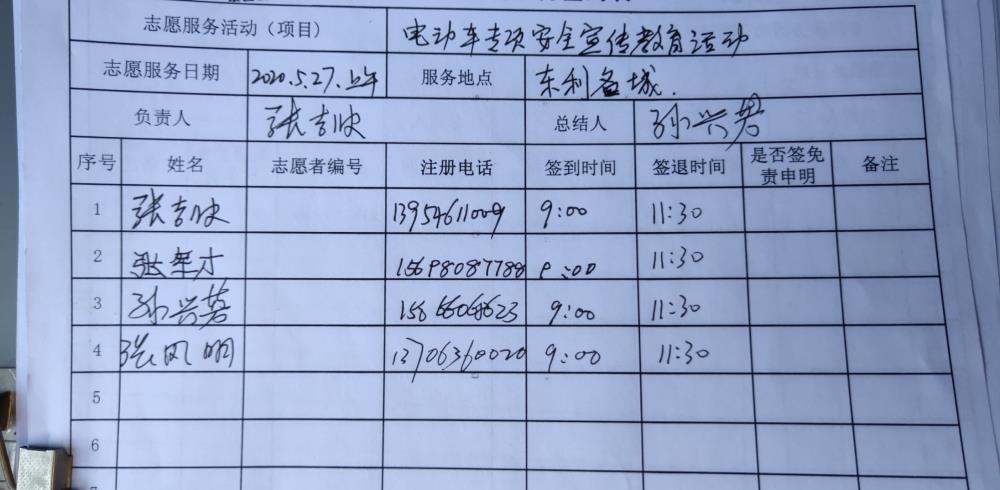 志愿服务活动（项目） 电动车专项安全宣传教育活动
志愿服务日期 2020.5.27.上午 服务地点 东利名城.
负责人 张吉欣 总结人 孙兴芳
序号 姓名 志愿者编号 注册电话 签到时间 签退时间 是否签免责申明 备注
1 张吉欣 13954611009 9:00 11:30
2 张军才 15698087788 9:00 11:30
3 孙兴芳 9:00 11:30
4 张风明 13706360020 9:00 11:30
5
6